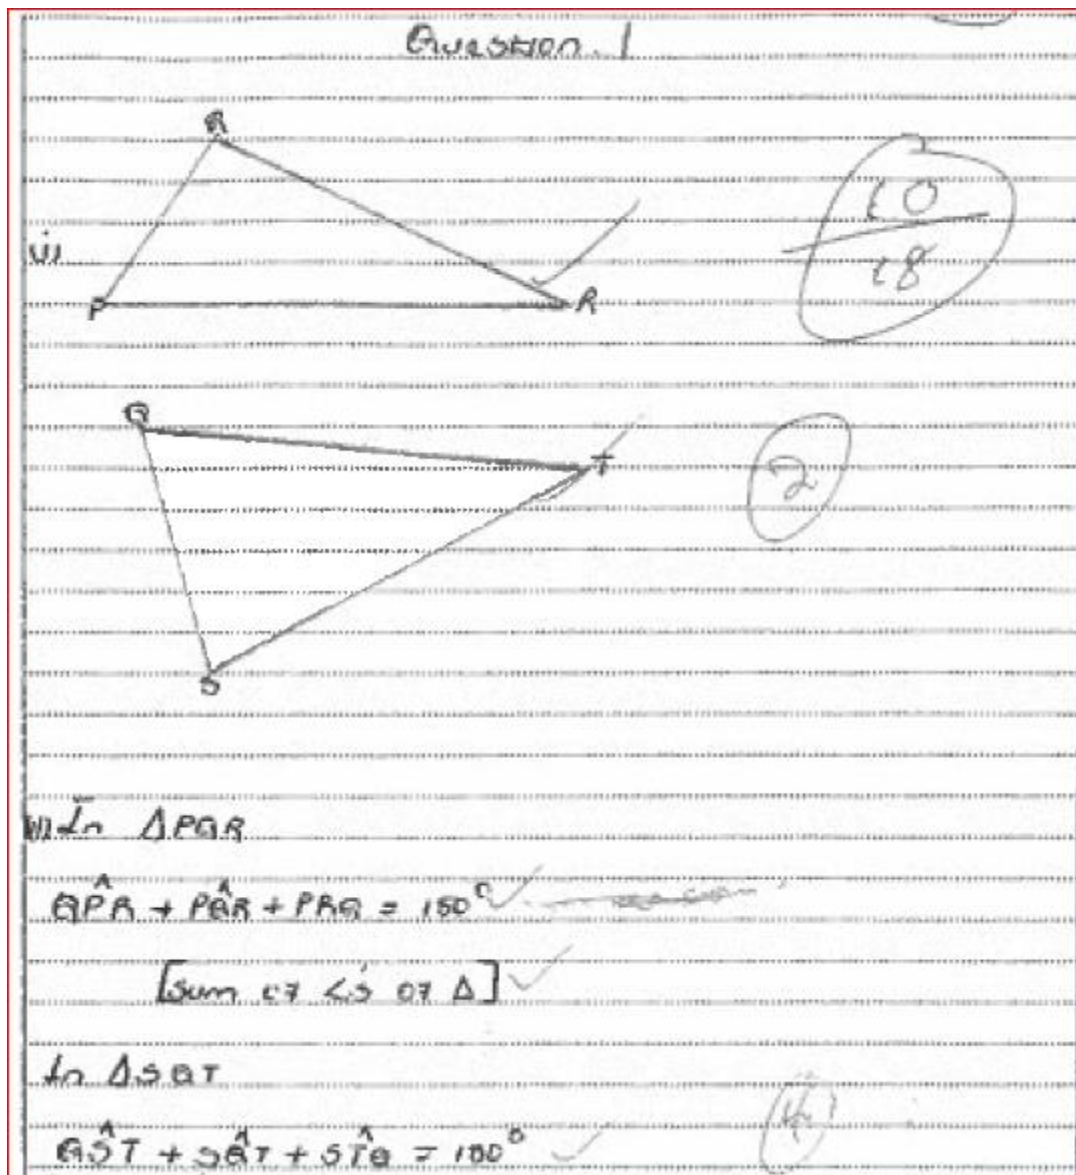 Question 1
Q
10
18
(i)
P R
Q
T
2
S
(ii) In ΔPQR
QP̂R + PQ̂R + PRQ = 180°
[sum of <'s of Δ]
In ΔSQT
4
QŜT + SQ̂T + ST̂Q = 180°